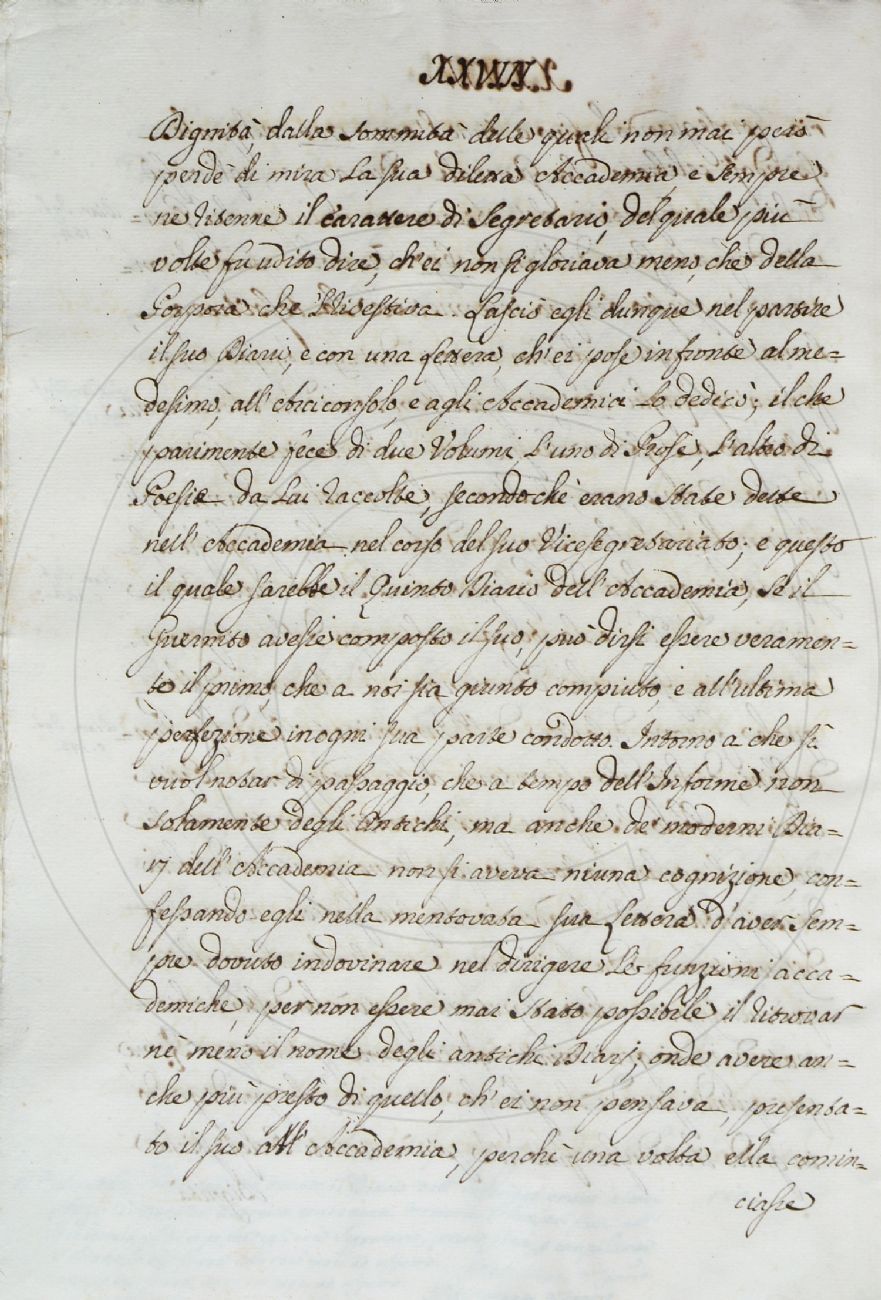 Dignità, dalla sommità delle quali non mai però
perdè di mira la sua diletta Accademia, e sempre
ne ritenne il carattere di Segretario, del quale più
volte fu udito dire, ch'ei non si gloriava meno, che della
Porpora che 'l rivestiva. Lasciò egli dunque nel partire
il suo Diario, e con una Lettera, ch'ei pose in fronte al me=
desimo, all'Arciconsolo, e agli Accademici lo dedicò; il che
parimente fece di due Volumi, l'uno di Prose, l'altro di
Poesie da lui raccolte, secondochè erano state dette
nell'Accademia nel corso del suo Vicesegretariato; e questo
il quale sarebbe il Quinto Diario dell'Accademia, se il
Guernito avesse composto il suo, può dirsi essere veramen=
te il primo, che a noi sia giunto compiuto, e all'ultima
perfezione in ogni sua parte condotto. Intorno a che si
vuol notar di passaggio, che a tempo dell'Informe non
solamente degli antichi, ma anche de' moderni Dia=
rj dell'Accademia non si aveva niuna cognizione, con=
fessando egli nella mentovata sua Lettera d'aver sem=
pre dovuto indovinare nel dirigere le funzioni acca=
demiche, per non essere mai stato possibile il ritrovar
nè meno il nome degli antichi Diarj; onde avere an=
che più presto di quello, ch'ei non pensava, presenta=
to il suo all'Accademia, perchè una volta ella comin=
ciasse